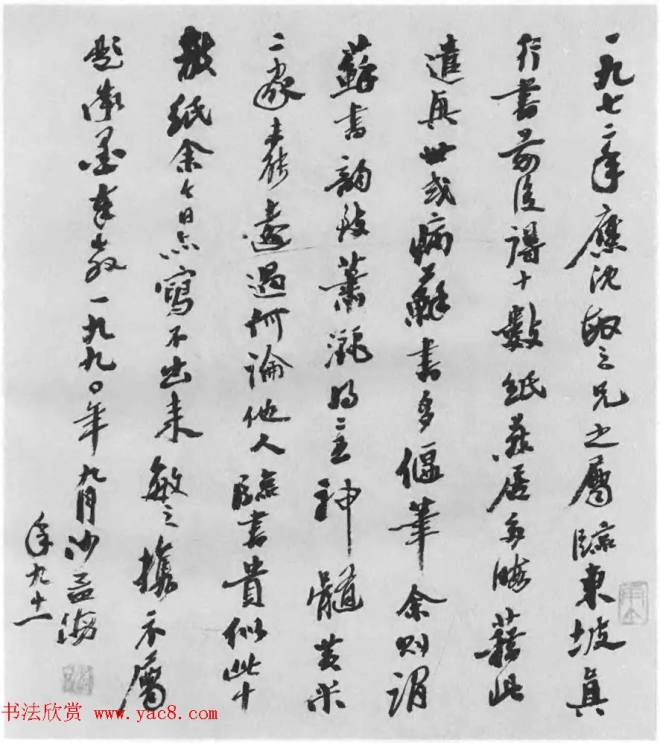 一九七二年應沈敏之兄之屬臨東坡真
行書前後得十數紙燕居多暇藉此
遣興世或病蘇書多偃筆余則謂
蘇書韵度蕭灑得二王神髓黃米
二家未能遠過何論他人臨書貴似此十
數紙余今日亦寫不出來敏之攜示屬
題一九九〇年九月沙孟海
年九十一
书法欣赏 www.yac8.com